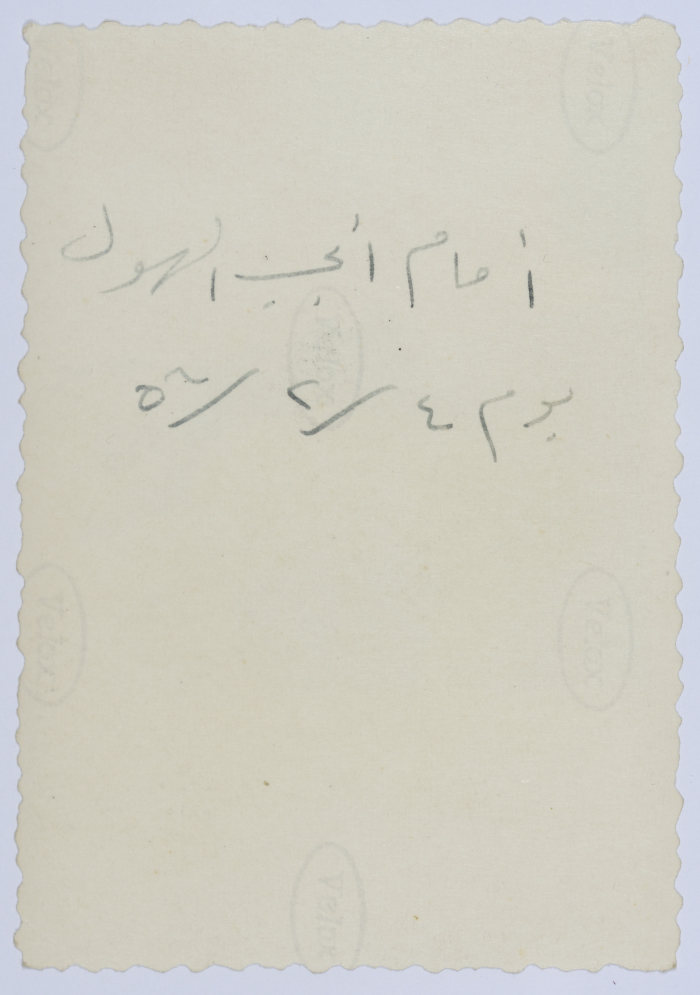 أمام أبي الهول
يوم ٤/٢/٥٦
Velox
Velox
Velox
Velox
Velox
Velox
Velox